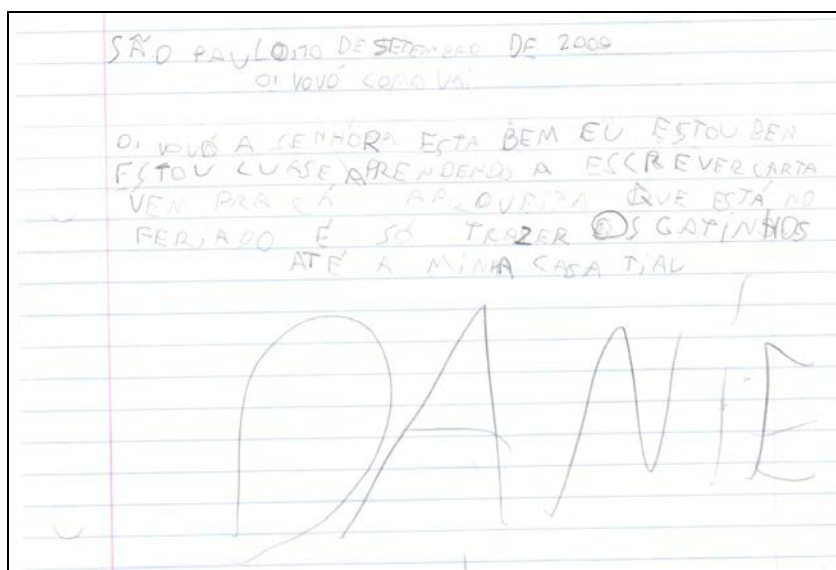 SÃO PAULO,10 DE SETEMBRO DE 2000
OI VOVÓ COMO VAI
OI VOVÓ A SENHORA ESTA BEM EU ESTOU BEN
ESTOU CUASE APRENDENDO A ESCREVER CARTA
VEN PRA CÁ APROVEITA QUE ESTÁ NO
FERIADO É SÓ TRAZER OS GATINHOS
ATÉ A MINHA CASA TIAU
DANIE